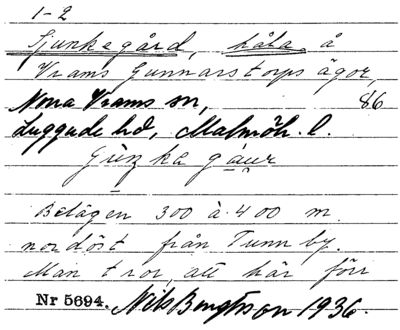 1-2
Sjunkegård, håla å
Vrams Gunnarstorps ägor,
Norra Vrams sn, 86
Luggude hd, Malmöh. l.
gáur
Belägen 300 à 400 m.
nordöst från Tunn by.
Man tror, att här förr
Nr 5694. Nils Bengtsson 1936.